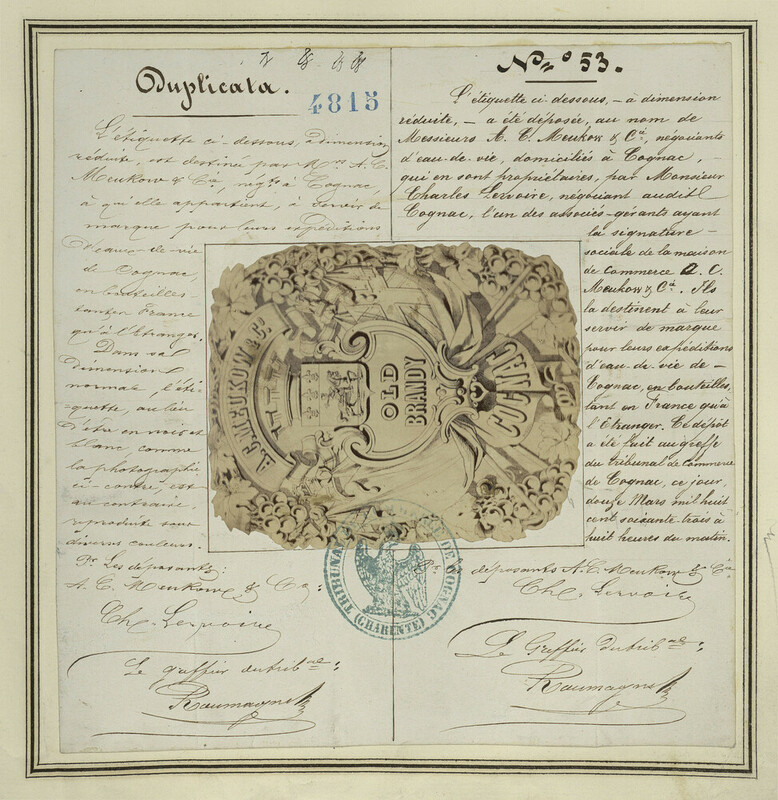 Duplicata.
4815
L'étiquette ci-dessous, à dimension
réduite, est destinée par Mrs A. C.
Meukow & Cie, négts à Cognac,
à qui elle appartient, à servir de
marque pour leurs expéditions
d'eaux-de-vie
de Cognac,
en bouteilles
tant en France
qu'à l'Etranger.
Dans sa
dimension
normale, l'éti-
quette, au lieu
d'être en noir et
blanc, comme
la photographie
ci-contre, est
au contraire,
reproduite sous
diverses couleurs.
Pr. Les déposants:
A. C. Meukow & Cie:
Ch. Lervoire
Le greffier du tribal:
Raumagne
No 53.
L'étiquette ci-dessous, – à dimension
réduite, – a été déposée, au nom de
Messieurs A. C. Meukow & Cie, négociants
d'eau-de-vie, domiciliés à Cognac, –
qui en sont propriétaires, par Monsieur
Charles Lervoire, négociant audit
Cognac, l'un des associés-gérants ayant
la signature –
sociale de la maison
de commerce A. C.
Meukow & Cie. Ils
la destinent à leur
servir de marque
pour leurs expéditions
d'eau-de-vie de –
Cognac, en bouteilles,
tant en France qu'à
l'Etranger. Ce dépôt
a été fait au greffe
du tribunal de Commerce
de Cognac, ce jour,
douze Mars mil huit
cent soixante trois à
huit heures du matin.
Pr. les déposants A. C. Meukow & Cie
Ch. Lervoire
Le Greffier du tribal:
Raumagne
A. C. MEUKOW & C.
OLD
BRANDY
COGNAC
TRIBUNAL DE COMMERCE DE COGNAC
(CHARENTE)